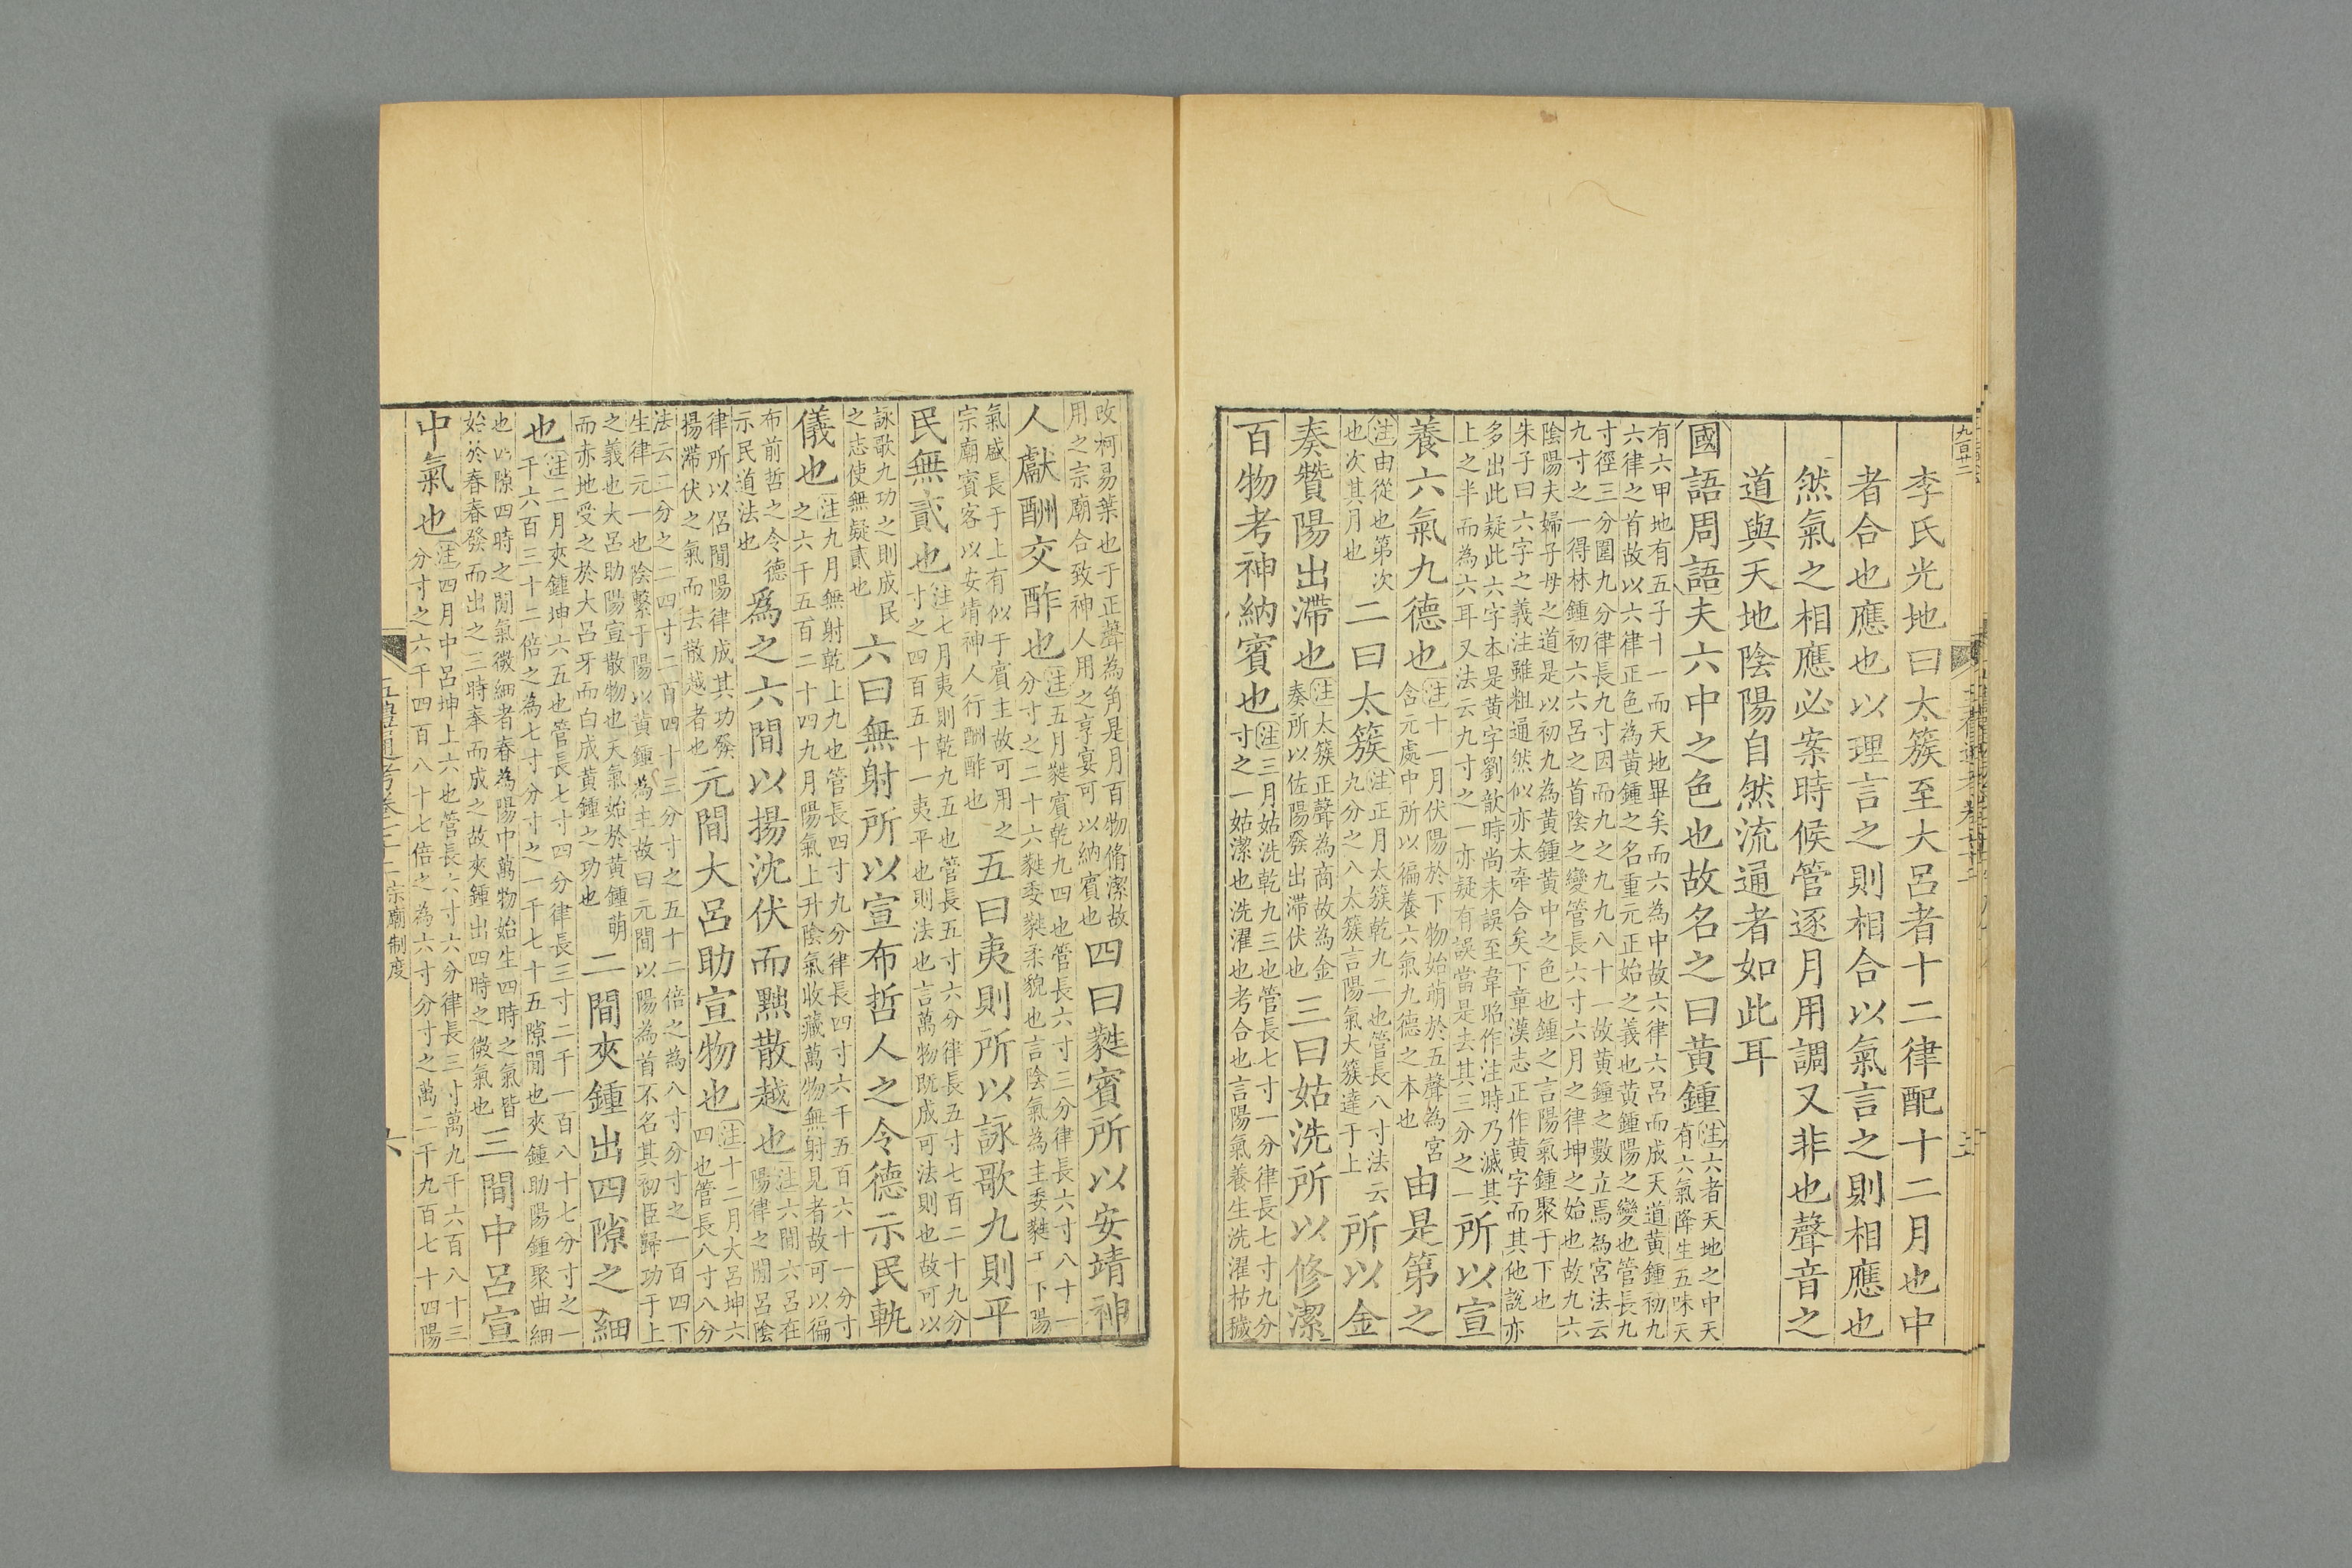 李氏光地曰太簇至大呂者十二律配十二月也中
者合也應也以理言之則相合以氣言之則相應也
然氣之相應必案時候管逐月用調又非也聲音之
道與天地陰陽自然流通者如此耳
國語周語夫六中之色也故名之曰黃鍾注六者天地之中天
有六氣降生五味天
有六甲地有五子十一而天地畢矣而六為中故六律六呂而成天道黃鍾初九
六律之首故以六律正色為黃鍾之名重元正始之義也黃鍾陽之變也管長九
寸徑三分圍九分律長九寸因而九之九九八十一故黃鍾之數立焉為宮法云
九寸之一得林鍾初六六呂之首陰之變管長六寸六月之律坤之始也故九六
陰陽夫婦子母之道是以初九為黃鍾黃中之色也鍾之言陽氣鍾聚于下也
朱子曰六字之義注雖粗通然似亦太牽合矣下章漢志正作黃字而其他說亦
多出此疑此六字本是黃字劉歆時尚未誤至韋昭作注時乃滅其
上之半而為六耳又法云九寸之一亦疑有誤當是去其三分之一所以宣
養六氣九德也注十一月伏陽於下物始萌於五聲為宮
含元處中所以徧養六氣九德之本也由是第之
注由從也第次
也次其月也二曰太簇注正月太簇乾九二也管長八寸法云
九分之八太簇言陽氣大簇達于上所以金
奏贊陽出滯也注太簇正聲為商故為金
奏所以佐陽發出滯伏也三曰姑洗所以修潔
百物考神納賓也注三月姑洗乾九三也管長七寸一分律長七寸九分
寸之一姑潔也洗濯也考合也言陽氣養生洗濯枯穢
改柯易葉也于正聲為角是月百物脩潔故
用之宗廟合致神人用之享宴可以納賓也四曰蕤賓所以安靖神
人獻酬交酢也注五月蕤賓乾九四也管長六寸三分律長六寸八十一
分寸之二十六蕤委蕤柔貌也言陰氣為主委蕤于下陽
氣盛長于上有似于賓主故可用之
宗廟賓客以安靖神人行酬酢也五曰夷則所以詠歌九則平
民無貳也注七月夷則乾九五也管長五寸六分律長五寸七百二十九分
寸之四百五十一夷平也則法也言萬物既成可法則也故可以
詠歌九功之則成民
之志使無疑貳也六曰無射所以宣布哲人之令德示民軌
儀也注九月無射乾上九也管長四寸九分律長四寸六千五百六十一分寸
之六千五百二十四九月陽氣上升陰氣收藏萬物無射見者故可以徧
布前哲之令德
示民道法也為之六間以揚沈伏而黜散越也注六間六呂在
陽律之間呂陰
律所以侶間陽律成其功發
揚滯伏之氣而去散越者也元間大呂助宣物也注十二月大呂坤六
四也管長八寸八分
法云二分之二四寸二百四十三分寸之五十二倍之為八寸分寸之一百四下
生律元一也陰繫于陽以黃鍾為主故曰元間以陽為首不名其初臣歸功于上
之義也大呂助陽宣散物也天氣始於黃鍾萌
而赤地受之於大呂牙而白成黃鍾之功也二間夾鍾出四隙之細
也注二月夾鍾坤六五也管長七寸四分律長三寸二千一百八十七分寸之一
千六百三十二倍之為七寸分寸之一千七十五隙間也夾鍾助陽鍾聚曲細
也以隙四時之間氣微細者春為陽中萬物始生四時之氣皆
始於春春發而出之三時奉而成之故夾鍾出四時之微氣也三間中呂宣
中氣也注四月中呂坤上六也管長六寸六分律長三寸萬九千六百八十三
分寸之六千四百八十七倍之為六寸分寸之萬二千九百七十四陽
宗廟制度
六